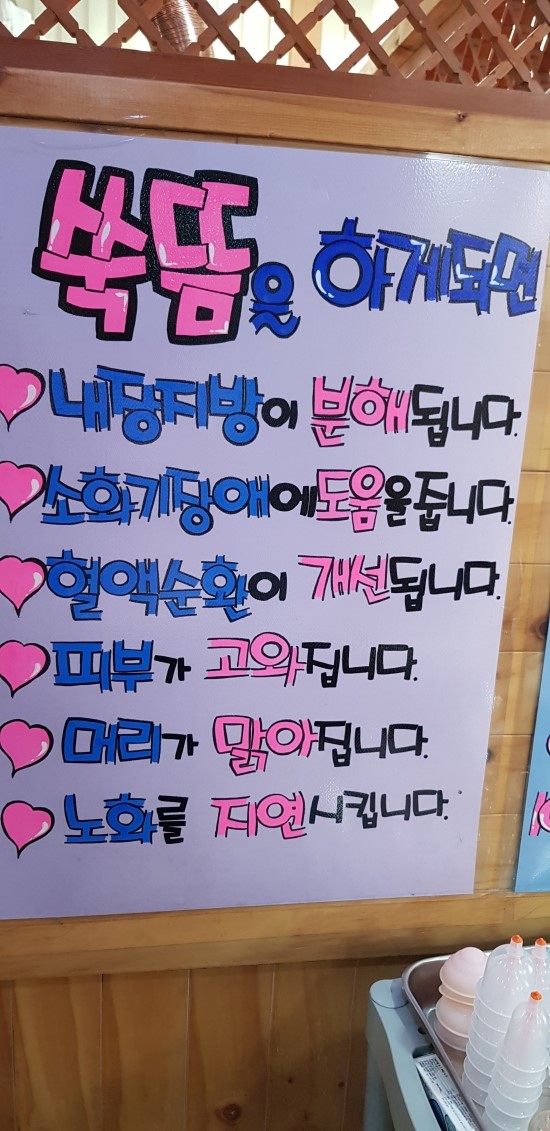 쑥뜸을 하게되면
내장지방이 분해됩니다.
소화기장애에도움을줍니다.
혈액순환이 개선됩니다.
피부가 고와집니다.
머리가 맑아집니다.
노화를 지연시킵니다.